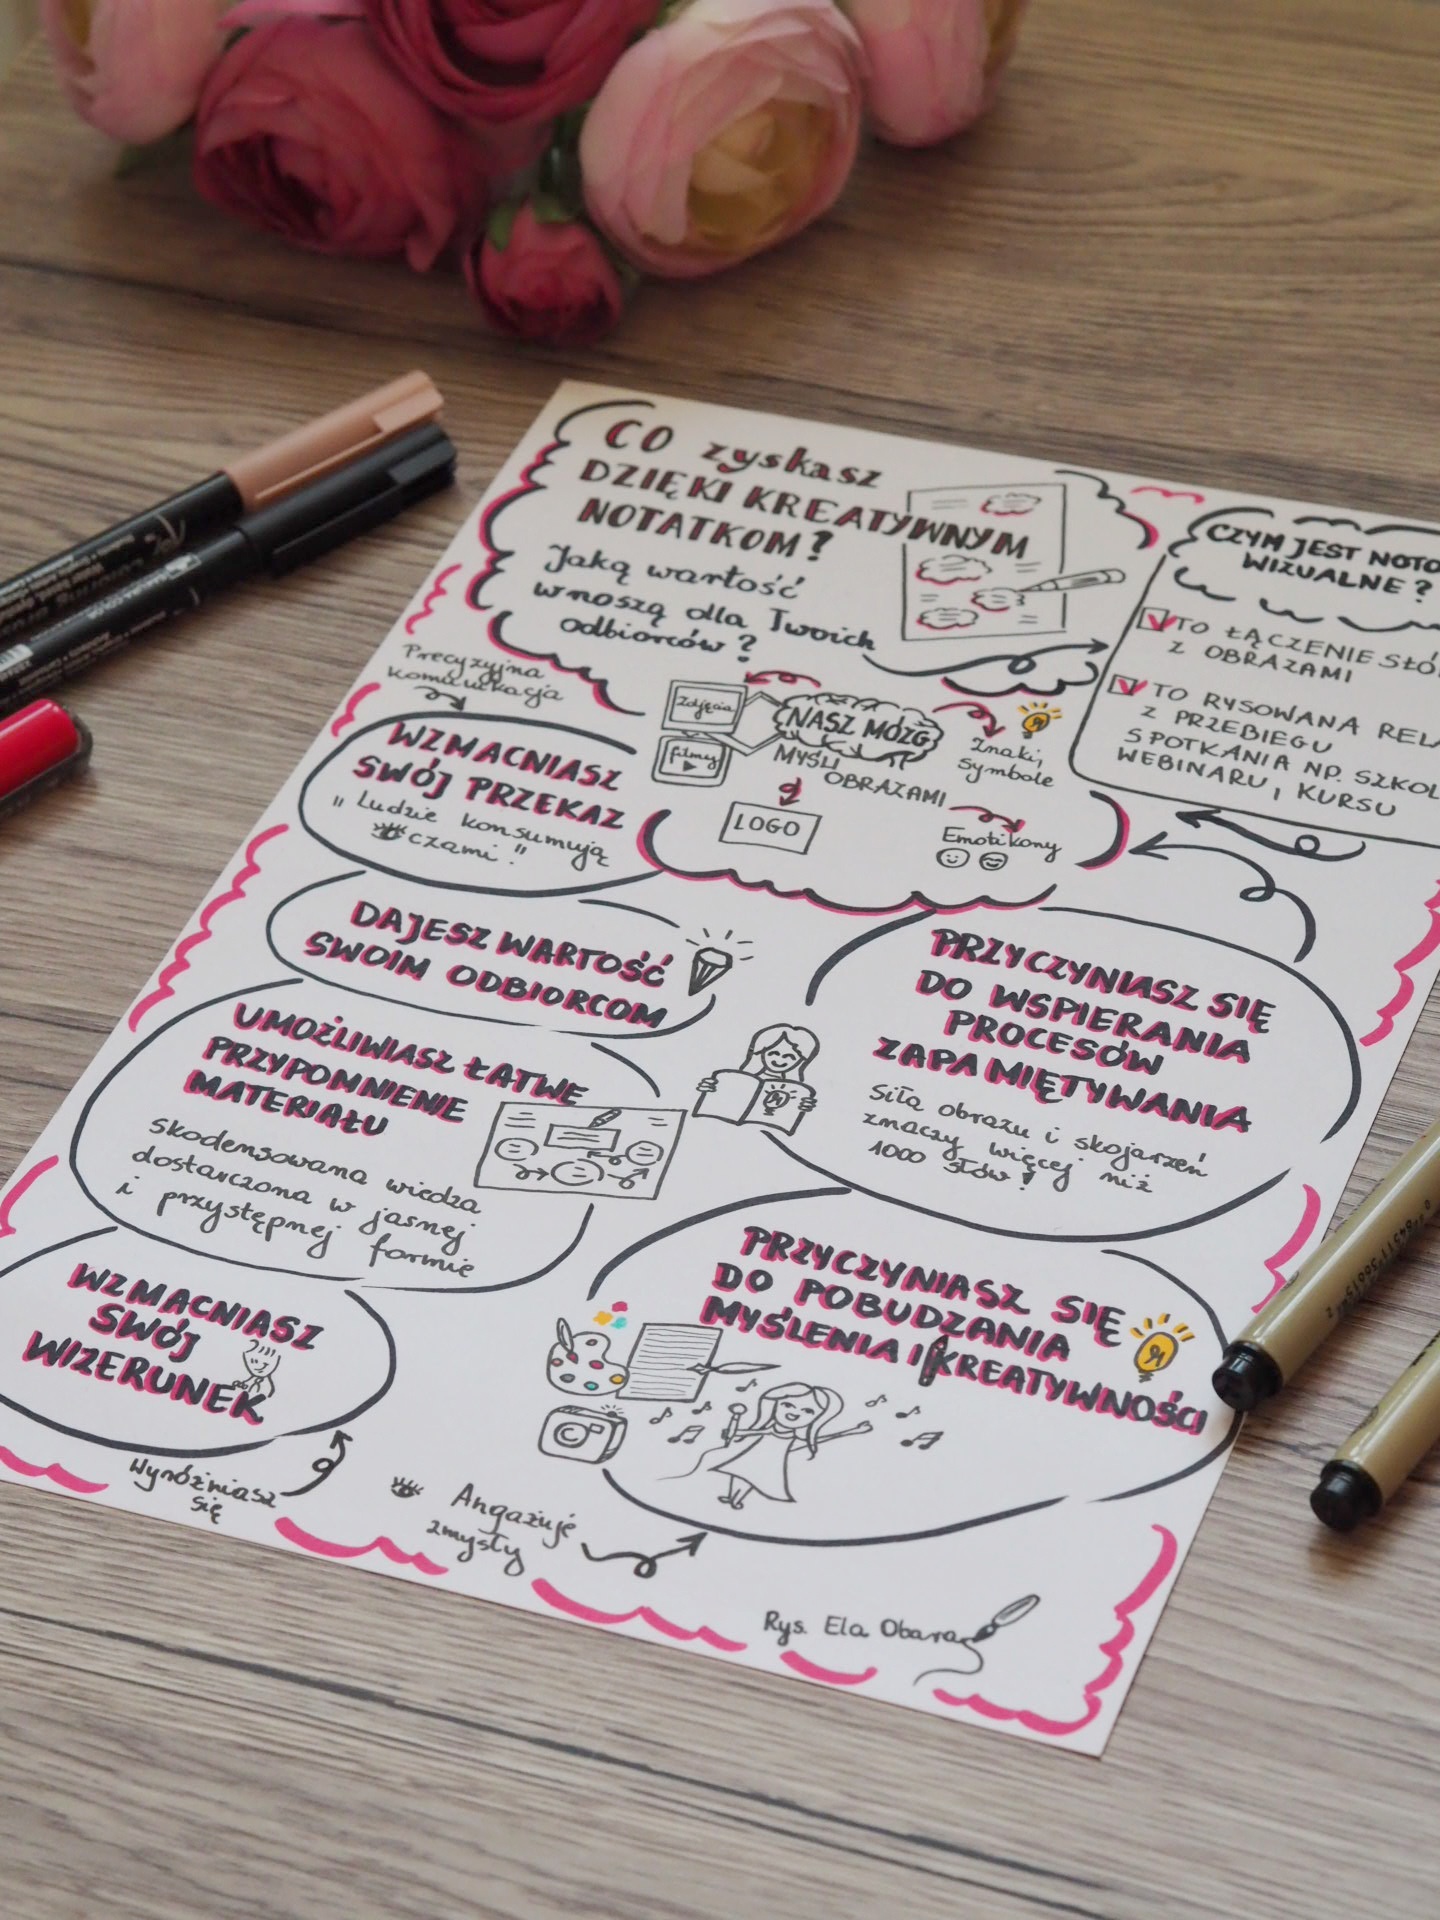 CO zyskasz
DZIĘKI KREATYWNYM
NOTATKOM?
Jaką wartość
wnoszą dla Twoich
odbiorców?
CZYM JEST NOTO
WIZUALNE?
TO ŁĄCZENIE SŁÓ
Z OBRAZAMI
TO RYSOWANA RELA
Z PRZEBIEGU
SPOTKANIA NP. SZKOL
WEBINARU, KURSU
Precyzyjna
komunikacja
WZMACNIASZ
SWÓJ PRZEKAZ
"Ludzie konsumują
oczami."
Zdjęcia
filmy
NASZ MÓZG
MYŚLI
OBRAZAMI
Znaki,
symbole
LOGO
Emotikony
DAJESZ WARTOŚĆ
SWOIM ODBIORCOM
UMOŻLIWIASZ ŁATWE
PRZYPOMNIENIE
MATERIAŁU
skodensowana wiedza
dostarczona w jasnej
i przystępnej formie
PRZYCZYNIASZ SIĘ
DO WSPIERANIA
PROCESÓW
ZAPAMIĘTYWANIA
Siła obrazu i skojarzeń
znaczy więcej niż
1000 słów!
WZMACNIASZ
SWÓJ
WIZERUNEK
Wyróżniasz
się
PRZYCZYNIASZ SIĘ
DO POBUDZANIA
MYŚLENIA I KREATYWNOŚCI
Angażuje
zmysły
Rys. Ela Obara